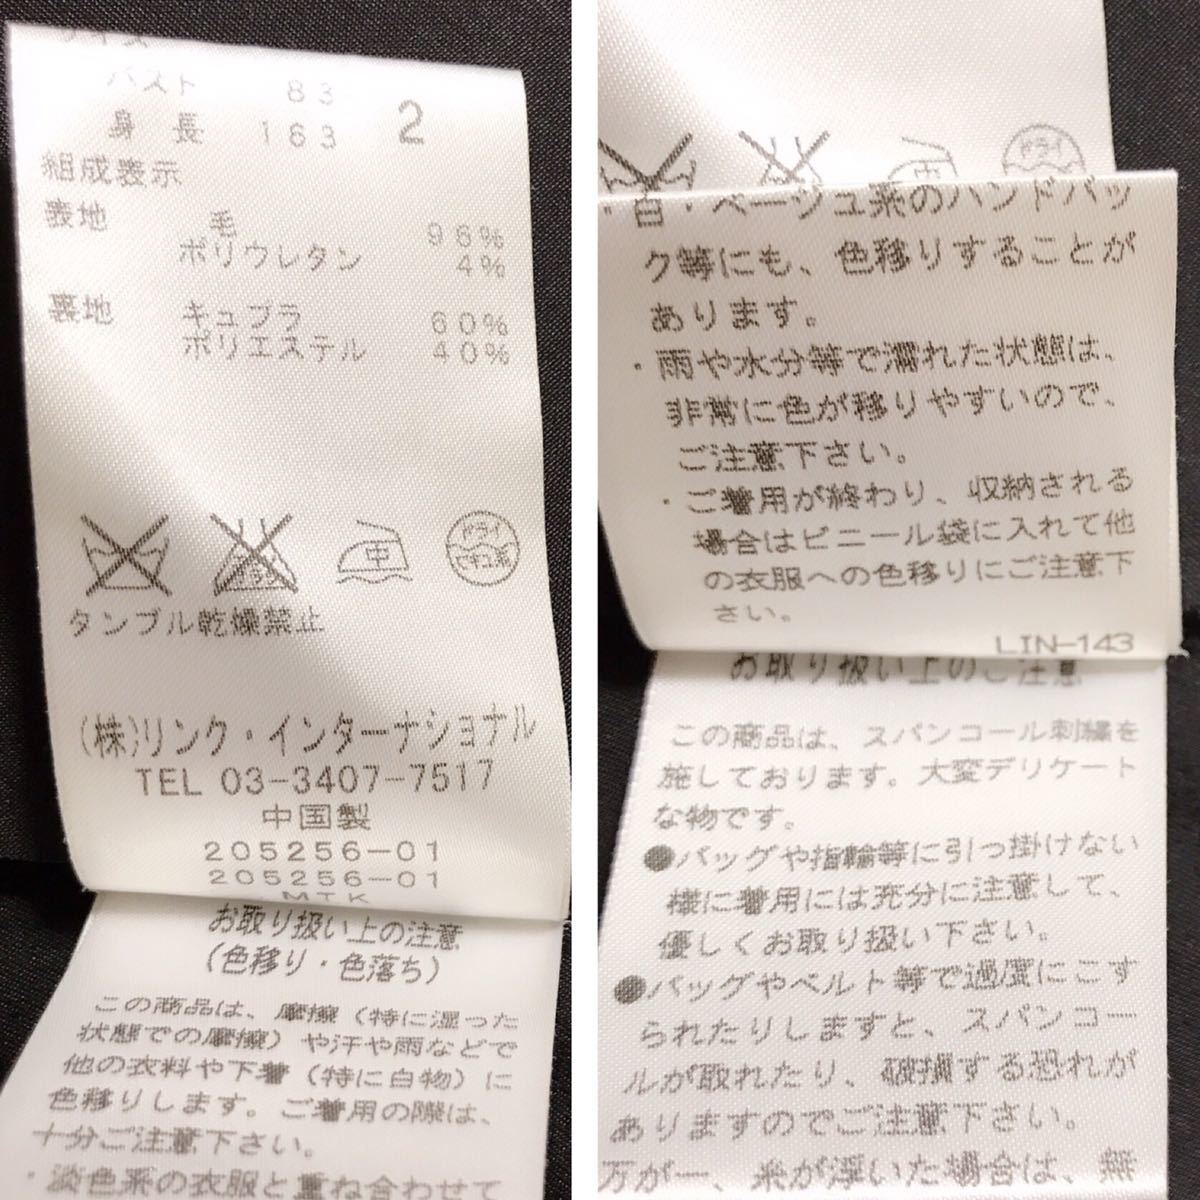 サイズ
バスト 83
身長 163 2
組成表示
表地 毛 96%
ポリウレタン 4%
裏地 キュプラ 60%
ポリエステル 40%
中 ドライ
セキユ系
タンブル乾燥禁止
(株)リンク・インターナショナル
TEL 03-3407-7517
中国製
205256-01
205256-01
MTK
お取り扱い上の注意
(色移り・色落ち)
この商品は、摩擦(特に湿った
状態での摩擦)や汗や雨などで
他の衣料や下着(特に白物)に
色移りします。ご着用の際は、
十分ご注意下さい。
・淡色系の衣服と重ね合わせて
中 ドライ
・白・ベージュ系のハンドバッ
ク等にも、色移りすることが
あります。
・雨や水分等で濡れた状態は、
非常に色が移りやすいので、
ご注意下さい。
・ご着用が終わり、収納される
場合はビニール袋に入れて他
の衣服への色移りにご注意下
さい。
LIN-143
お取り扱い上のご注意
この商品は、スパンコール刺繍を
施しております。大変デリケート
な物です。
●バッグや指輪等に引っ掛けない
様に着用には充分に注意して、
優しくお取り扱い下さい。
●バッグやベルト等で過度にこす
られたりしますと、スパンコー
ルが取れたり、破損する恐れが
ありますのでご注意下さい。
万が一、糸が浮いた場合は、無